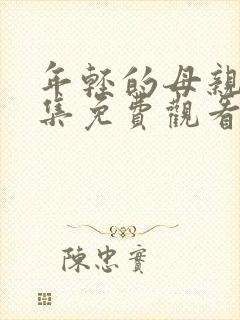 年輕的母親
集免費觀看
陳忠實